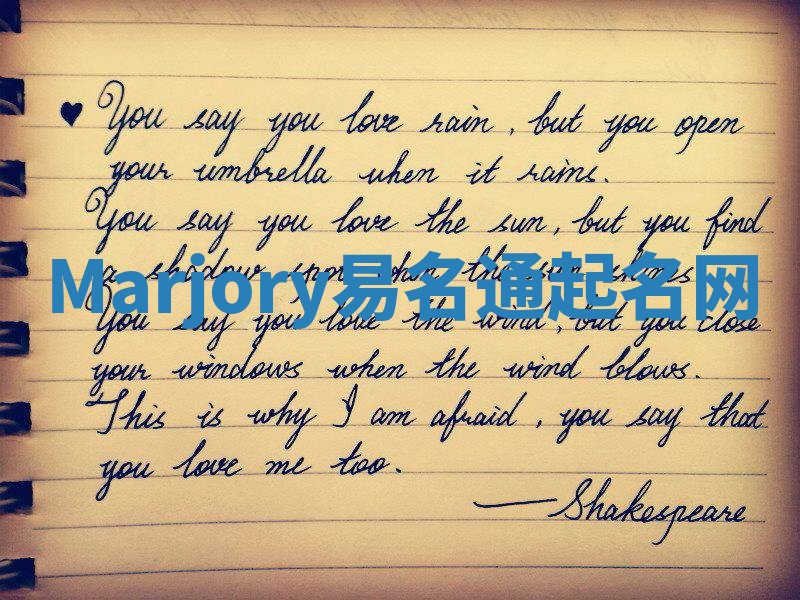 ♥ You say you love rain, but you open
your umbrella when it rains.
You say you love the sun, but you find
a shadow spot when the sun shines
Marjory易名通起名网
You say you love the wind, but you close
your windows when the wind blows.
This is why I am afraid, you say that
you love me too.
—Shakespeare